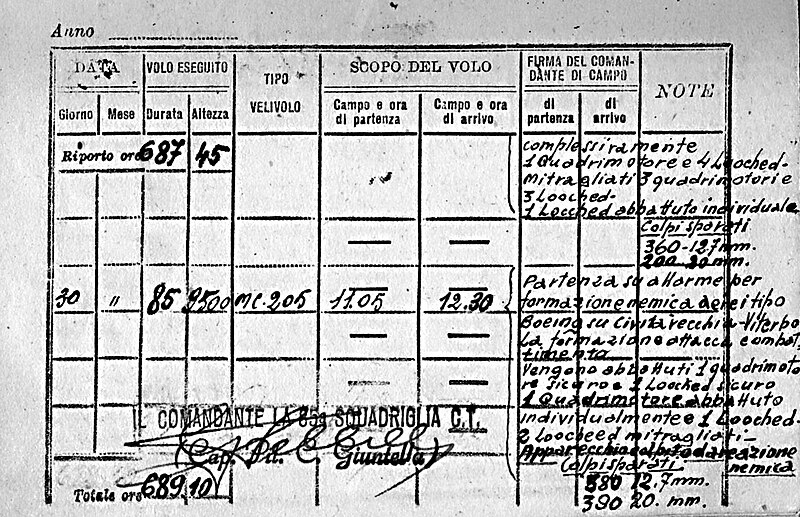 Anno
DATA
VOLO ESEGUITO
TIPO VELIVOLO
SCOPO DEL VOLO
FIRMA DEL COMAN-
DANTE DI CAMPO
NOTE
Giorno Mese Durata Altezza
Campo e ora di partenza
Campo e ora di arrivo
di partenza
di arrivo
Riporto ore 687 45
complessivamente
1 Quadrimotore e 4 Looched-
Mitragliati 3 quadrimotori e
3 Looched-
1 Locched abbattuto individuale
Colpi sparati
360-12,7 mm.
200-20 mm.
30 " 85 9500 MC.205 11.05 12.30
Partenza su allarme per
formazione nemica aerei tipo
Boeing su Civitavecchia-Viterbo
La formazione attacca combat
timento
Vengono abbattuti 1 quadrimoto
re sicuro e 1 Looched sicuro
1 Quadrimotore abbattuto
individualmente e 1 Looched-
2 Loocheed mitragliati-
Apparecchio colpito da reazione
nemica
Colpi sparati
380 12.7 mm.
390 20. mm.
IL COMANDANTE LA 85a SQUADRIGLIA C.T.
(Cap. Pil. C. Giuntella)
Totale ore 689 10